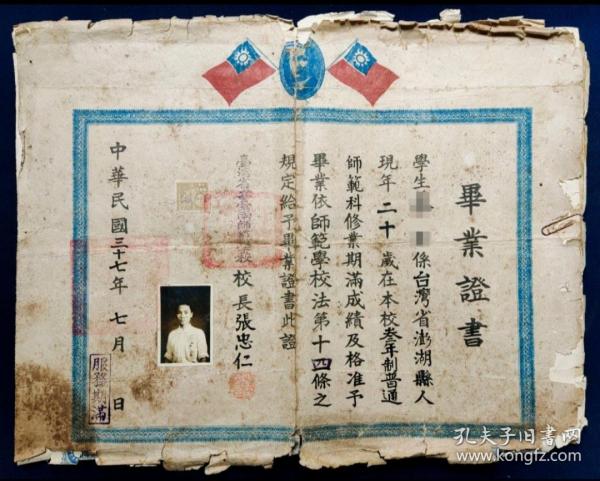 畢業證書
學生
係台灣省澎湖縣人
現年二十歲在本校叁年制普通
師範科修業期滿成績及格准予
畢業依師範學校法第十四條之
規定給予畢業證書此證
臺灣省立臺南師範學校校長張忠仁
中華民國三十七年七月
日
服務期滿
孔夫子旧书网
www.kongfz.com